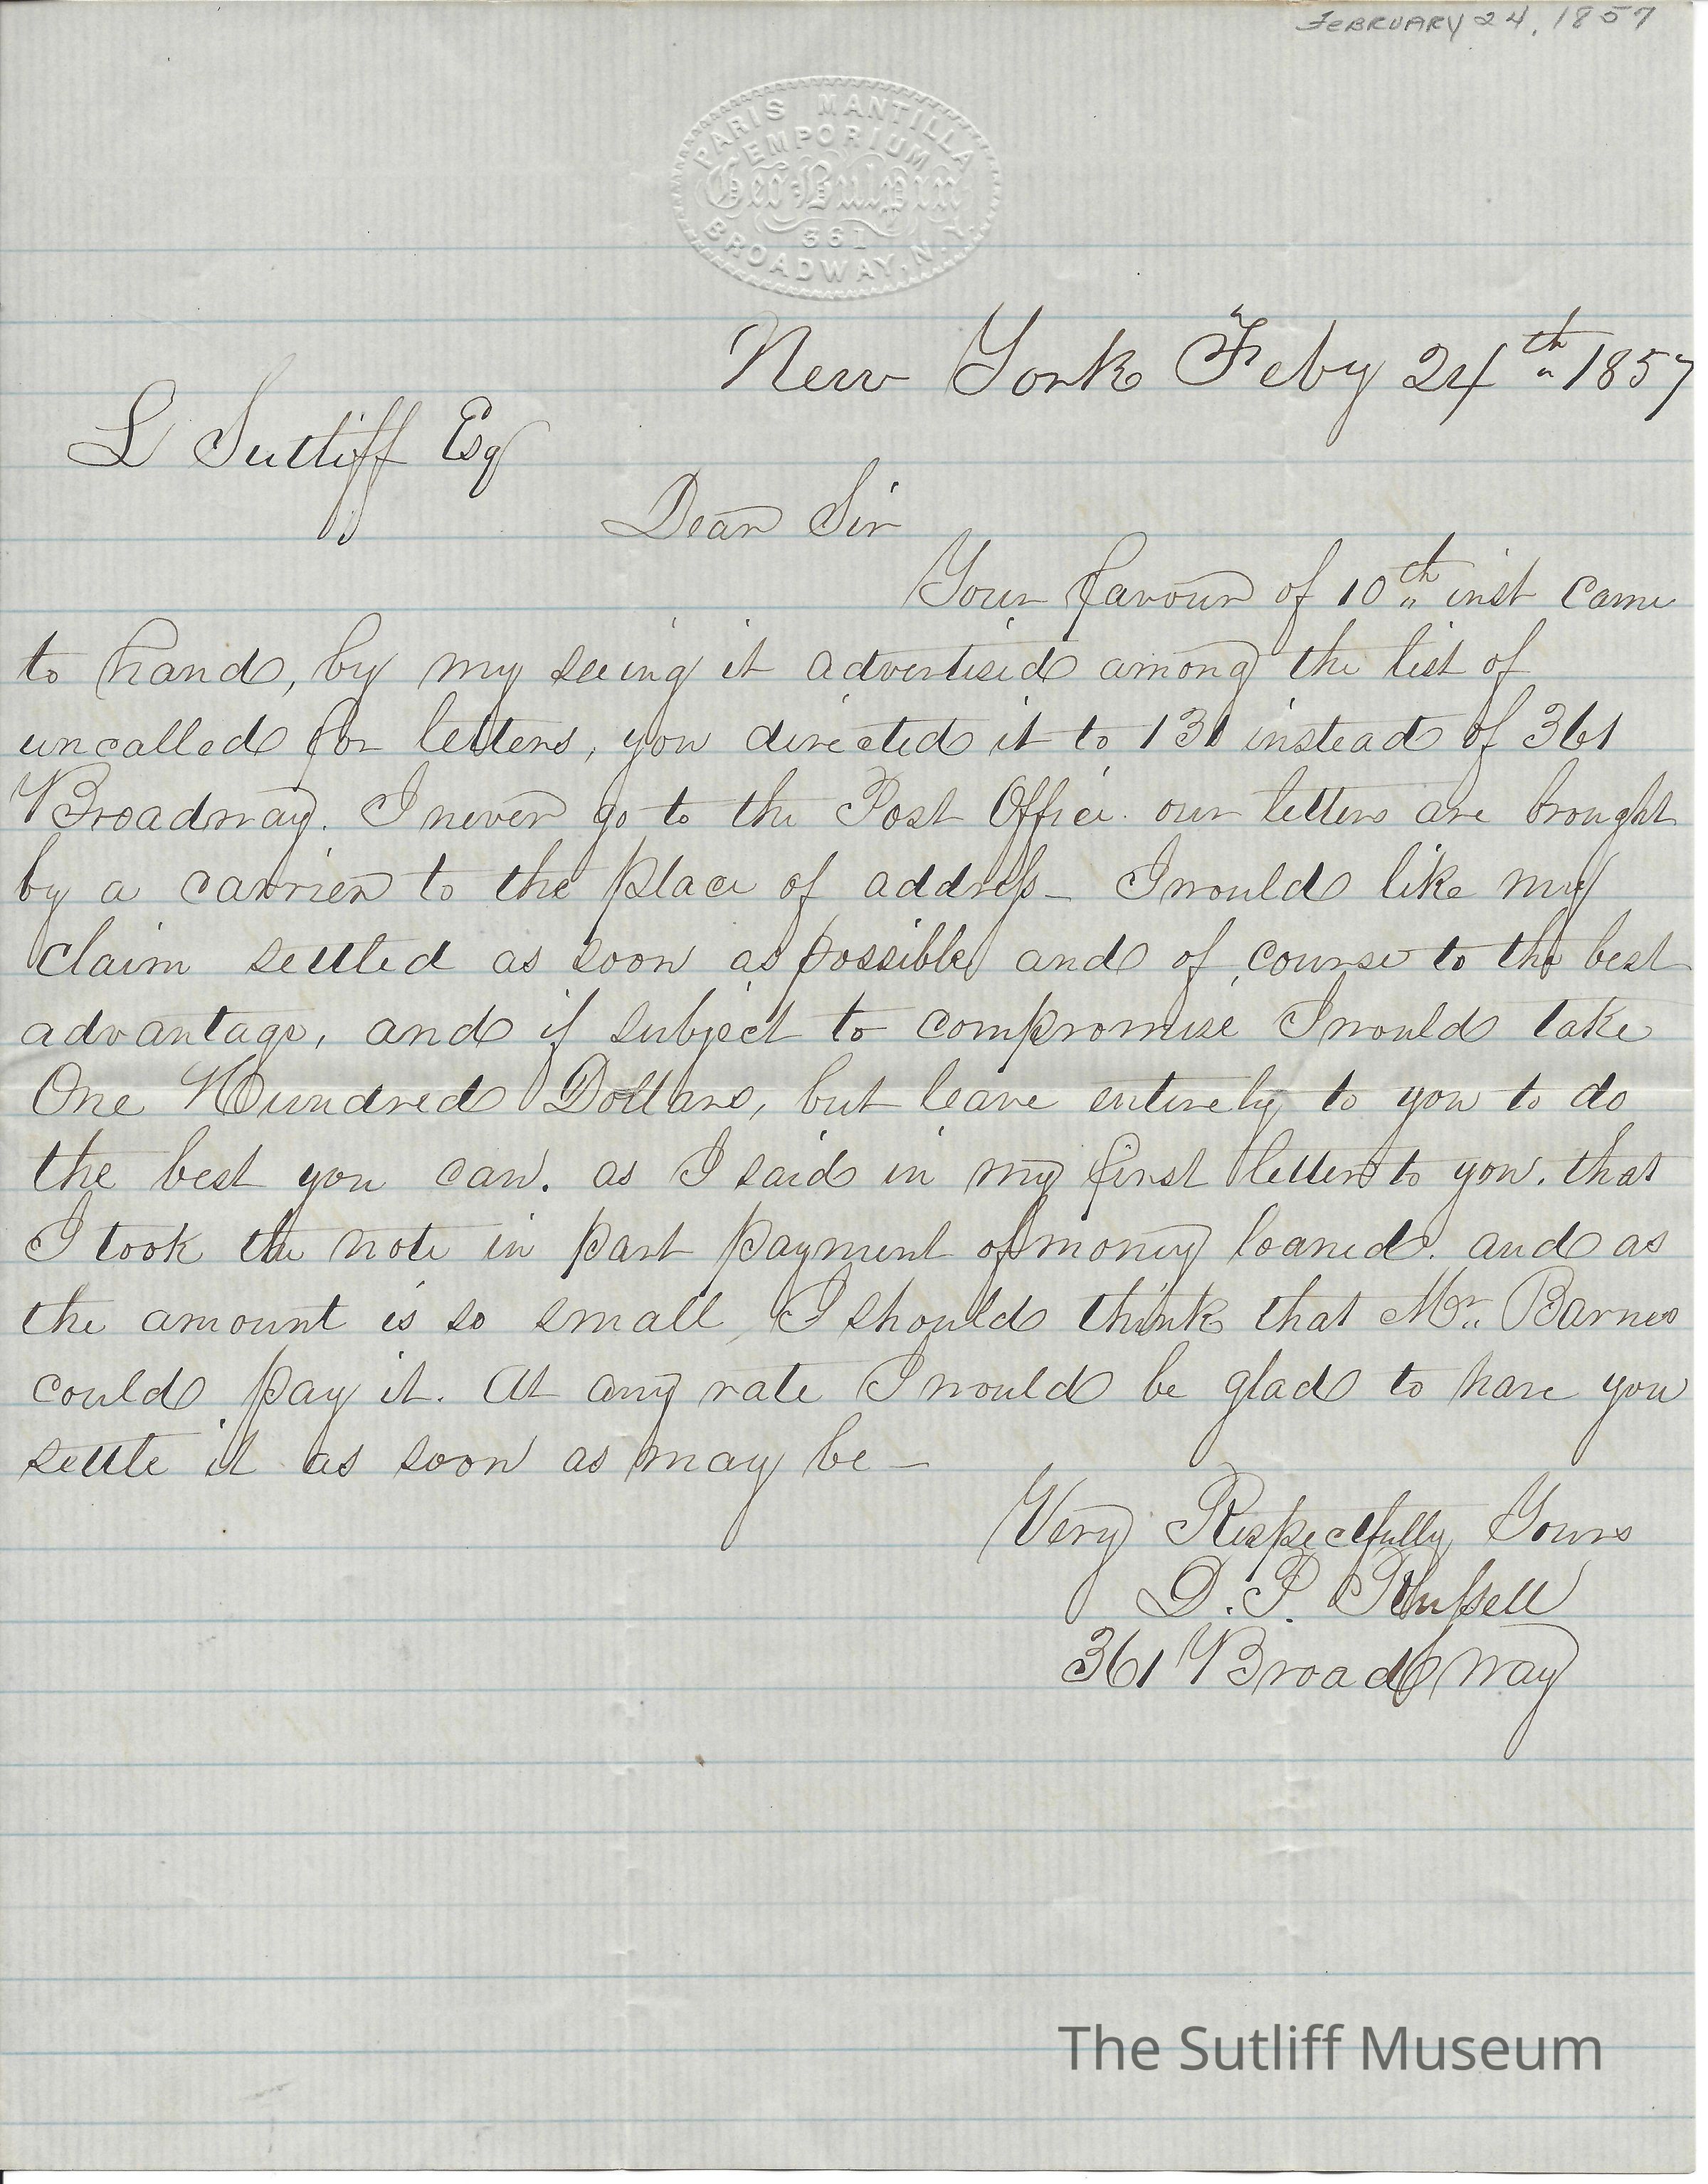 FEBRUARY 24, 1857
PARIS MANTILLA
EMPORIUM
Geo. Bulpin
361
BROADWAY, N.Y.
New York Feby 24th 1857
L Sutliff Esq
Dear Sir
Your favour of 10th inst came
to hand, by my seeing it advertised among the list of
uncalled for letters, you directed it to 131 instead of 361
Broadway. I never go to the Post Office. our letters are brought
by a carrier to the place of address - I would like my
claim settled as soon as possible and of course to the best
advantage, and if subject to compromise I would take
One Hundred Dollars, but leave entirely to you to do
the best you can. as I said in my first letter to you. that
I took the note in part payment of money loaned. and as
the amount is so small, I should think that Mr. Barnes
could pay it. At any rate I would be glad to have you
settle it as soon as may be -
Very Respectfully Yours
D. P. Russell
361 Broadway
The Sutliff Museum